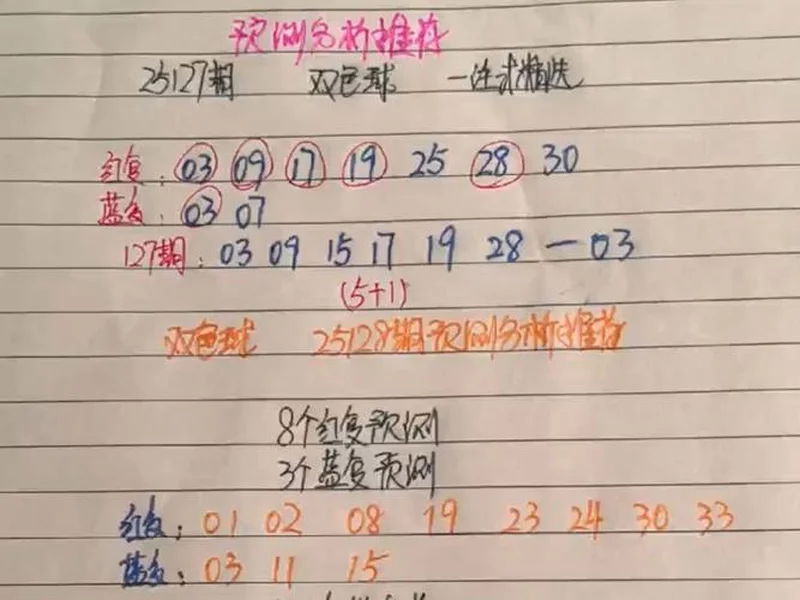 预测分析推荐
25127期 双色球 一注式精选
红复：03 09 17 19 25 28 30
蓝复：03 07
127期：03 09 15 17 19 28 — 03
(5+1)
双色球 25128期预测分析推荐
8个红复预测
3个蓝复预测
红复：01 02 08 19 23 24 30 33
蓝复：03 11 15